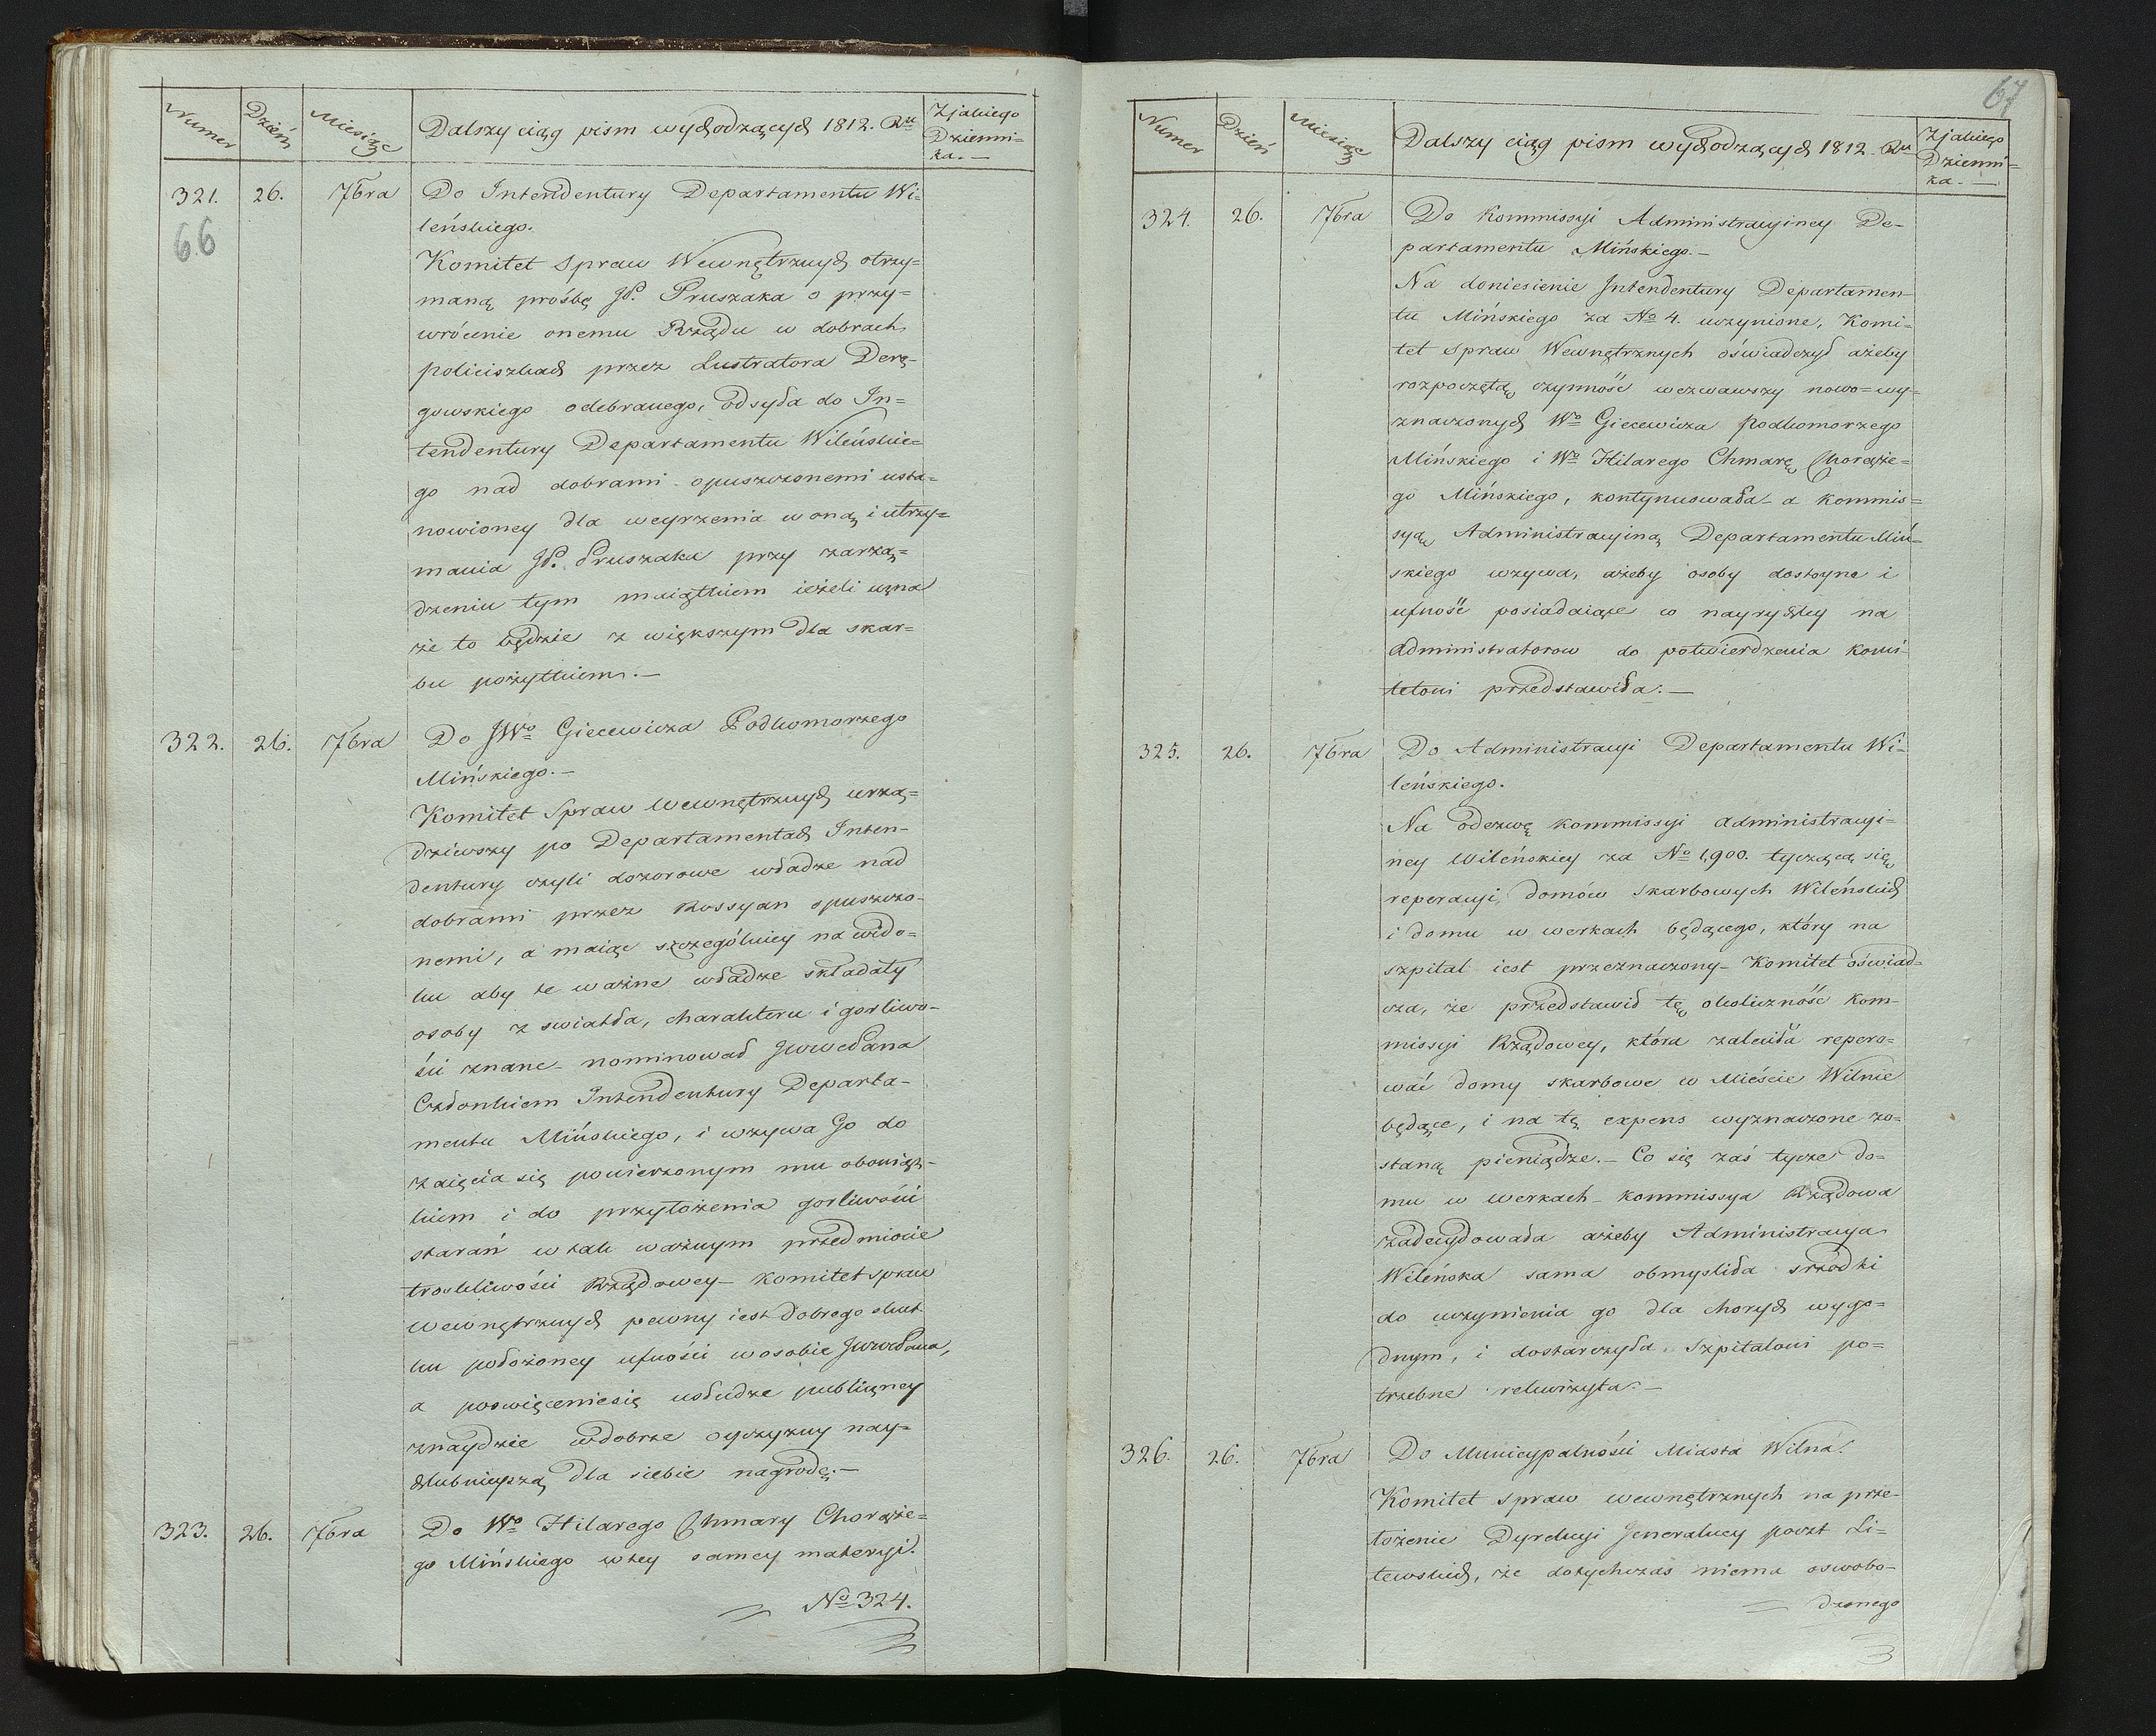 Numer
Dzień
Miesiąc
Dalszy ciąg pism wychodzących 1812. Ru
Z jakiego
Dzienni-
ka.—
321.
26.
7bra
66
Do Intendentury Departamentu Wi=
leńskiego.
Komitet Spraw Wewnętrznych otrzy=
maną prośbę JP. Pruszaka o przy=
wrócenie onemu Rządu w dobrach
policiszkach przez Lustratora Derę-
gowskiego odebranego, odsyła do In=
tendentury Departamentu Wileńskie=
go nad dobrami opuszczonemi usta=
nowioney dla weyrzenia w oną i utrzy=
mania JP. Pruszaka przy zarzą=
dzeniu tym maiątkiem ieżeli uzna
że to będzie z większym dla skar=
bu pożytkiem.—
322.
26.
7bra
Do JWo Giecewicza Podkomorzego
Mińskiego.—
Komitet Spraw Wewnętrznych urzą=
dziwszy po Departamentach Inten-
dentury czyli dozorowe władze nad
dobrami przez Rossyan opuszczo-
nemi, a maiąc szczególniey na wido-
ku aby te ważne władze składały
osoby z swiatła, charakteru i gorliwo-
ści znane— nominował JWWćPana
Członkiem Intendentury Departa-
mentu Mińskiego, i wzywa Go do
zaięcia się powierzonym mu obowiąz-
kiem i do przyłożenia gorliwości
starań w tak ważnym przedmiocie
troskliwości Rządowey— Komitet spraw
wewnętrznych pewny iest dobrego skut-
ku położoney ufności w osobie JWWćPana,
a poswięceniesię usłudze publiczney
znaydzie w dobrze oyczyzny nay=
chlubnieyszą dla siebie nagrodę.—
323.
26.
7bra
Do Wo Hilarego Chmary Chorąże=
go Mińskiego w tey samey materyi.
= No 324.
67
Numer
Dzień
Miesiąc
Dalszy ciąg pism wychodzących 1812. Ru
Z jakiego
Dzienni=
ka.—
324.
26.
7bra
Do Kommissyi Administracyiney De-
partamentu Mińskiego.—
Na doniesienie Intendentury Departamen-
tu Mińskiego za No 4. uczynione, Komi=
tet Spraw Wewnętrznych oświadczył ażeby
rozpoczętą czynność wezwawszy nowo=wy=
znaczonych Wo Giecewicza Podkomorzego
Mińskiego i Wo Hilarego Chmarę Chorąże=
go Mińskiego, kontynuowała— a Kommis=
syą Administracyiną Departamentu Miń-
skiego wzywa, ażeby osoby dostoyne i
ufność posiadaiące co nayrychley na
Administratorow do potwierdzenia Komi-
tetowi przedstawiła.—
325.
26.
7bra
Do Administracyi Departamentu Wi-
leńskiego.
Na odezwę Kommissyi administracyi-
ney Wileńskiey za No 1,900. tyczącą się
reperacyi domów skarbowych Wileńskich
i domu w werkach będącego, który na
szpital iest przeznaczony— Komitet oświad=
cza, że przedstawił tę okoliczność Kom-
missyi Rządowey, która zaleciła repero-
wać domy skarbowe w Mieście Wilnie
będące, i na tę expens wyznaczone zo=
staną pieniądze.— Co się zaś tycze do=
mu w werkach— Kommissya Rządowa
zadecydowała ażeby Administracya
Wileńska sama obmysliła srzodki
do uczynienia go dla chorych wygo=
dnym, i dostarczyła Szpitalowi po=
trzebne rekwizyta.—
326.
26.
7bra
Do Municypalności Miasta Wilna.
Komitet spraw wewnętrznych na prze-
łożenie Dyrekcyi Jeneralney poczt Li=
tewskich, że dotychczas niema oswobo-
= dzonego